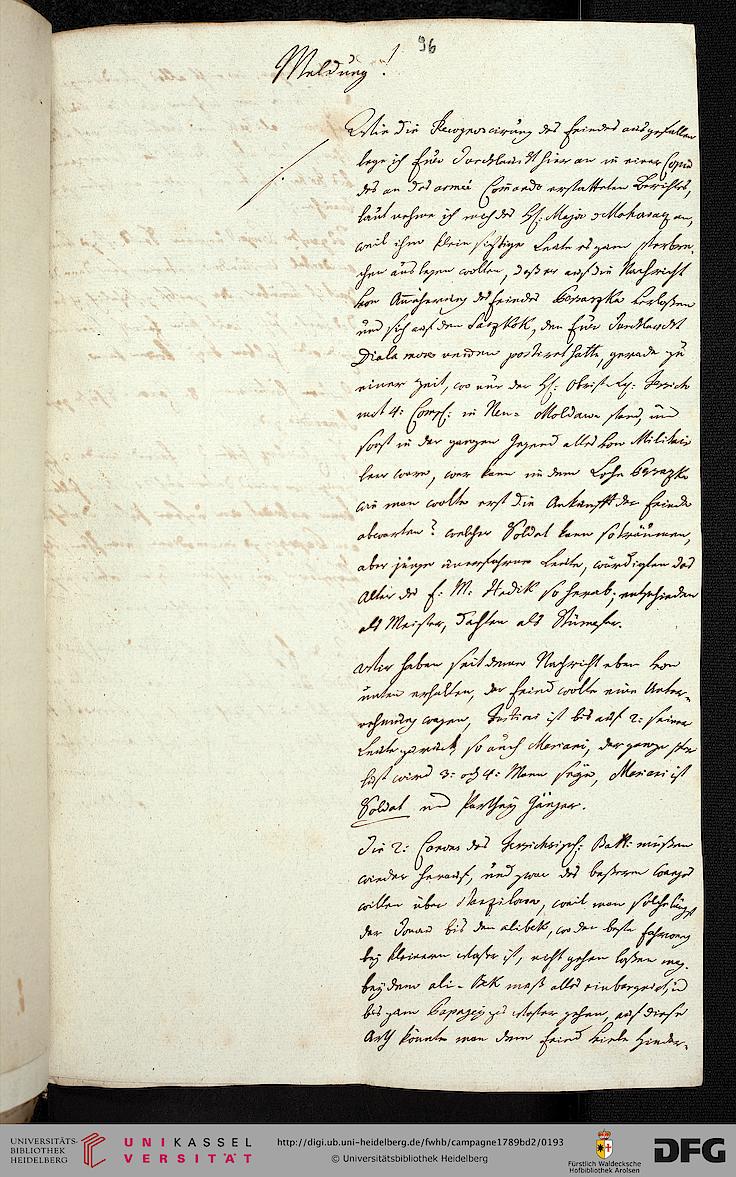 96
Meldung!
Wie die Recognoscirung des Feindes ausgefallen
lege ich Euer Durchlaucht hier an in einer Copia
des an das armée Comando erstatteten Berichts,
laut nehme ich mich des H: Major v Mohacsay an,
weil ihm klein sichtige Leute es zum Verbre-
chen auslegen wollen, daß er auf die Nachricht
von Annäherung des Feindes Bersaszka verlassen
und sich auf den, den Euer Durchlaucht
postiret hatte, gerade zu
einer Zeit, wo nur der H: Obrist
mit 4: Comp: in Neu-Moldawa stand, und
sonst in der ganzen Gegend alles von Militair
leer ware, wer kann in dem Loche
wie man wollte erst die Ankunfft der Feinde
abwarten? welcher Soldat kann so träumen,
aber junge unerfahrne Leute, würdigten das
Alter des F: M: Hadik so herab, entschieden
als Meister, dachten als Stümpfer.
Wir haben seit deme Nachricht eben von
unten erhalten, der Feind wolle eine Unter-
nehmung wagen, ist bis auf 2: seiner
Leute zurück, so auch Meriani, der ganze
wird 3: oder 4: Mann seyn, Meriani ist
Soldat und Parthey Gänger.
Die 2: Corps des Batt: müssen
wieder herauf, und zwar des besseren Weegs
willen über, weil man solche längst
der Donau bis dem alibek, wo der beste Fahrweg
bey kleinerem Wasser ist, nicht gehen lassen mag.
bey dem ali-bek muß alles
bis zum Wasser gehen, auf diese
Arth könnte man dem Feind viele Hinder-
UNIVERSITÄTS-
BIBLIOTHEK
HEIDELBERG
UNIKASSEL
VERSITÄT
http://digi.ub.uni-heidelberg.de/fwhb/campagne1789bd2/0193
© Universitätsbibliothek Heidelberg
Fürstlich Waldecksche
Hofbibliothek Arolsen
DFG